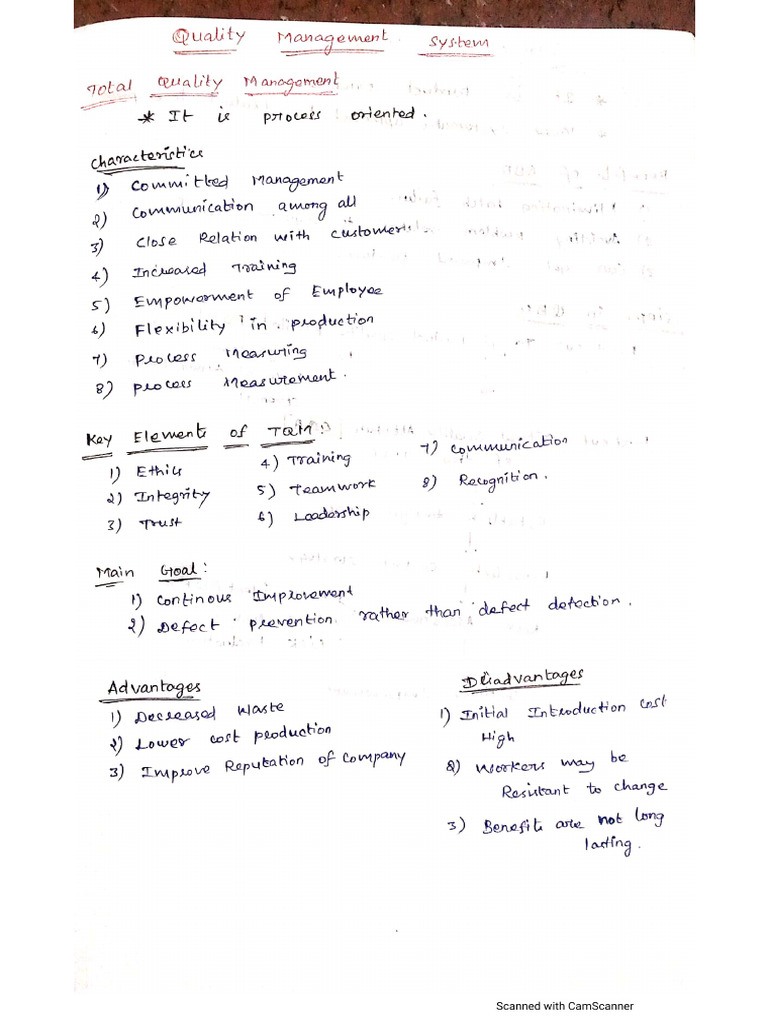 Quality Management System
Total Quality Management
* It is process oriented.
Characteristics
1) Committed Management
2) Communication among all
3) Close Relation with customer
4) Increased Training
5) Empowerment of Employee
6) Flexibility in production
7) Process Measuring
8) Process Measurement.
Key Elements of TQM:
1) Ethics
2) Integrity
3) Trust
4) Training
5) Teamwork
6) Leadership
7) Communication
8) Recognition.
Main Goal:
1) Continous Improvement
2) Defect prevention rather than defect detection.
Advantages
1) Decreased Waste
2) Lower cost production
3) Improve Reputation of Company
Disadvantages
1) Initial Introduction Cost
High
2) Workers may be
Resistant to change
3) Benefits are not long
lasting.
Scanned with CamScanner